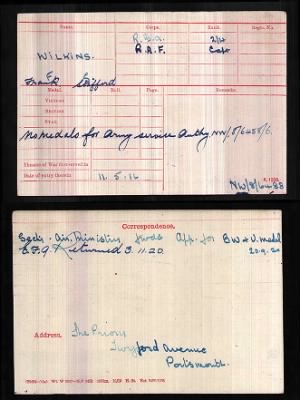 Name. Corps. Rank. Regtl. No.
WILKINS. R.G.A. 2/Lt
R.A.F. Capt
Frank Clifford
Medal. Roll. Page. Remarks.
VICTORY
BRITISH
STAR
No medals for Army service Auth NW/8/64585/6.
Theatre of War first served in
Date of entry therein 11.5.16 K. 1380.
NW/8/64588
Correspondence.
Secty. Air Ministry fwds App. for B.W & V. medal
returned 3.11.20. 20.9.20
Address. The Priory
Twyford Avenue
Portsmouth.